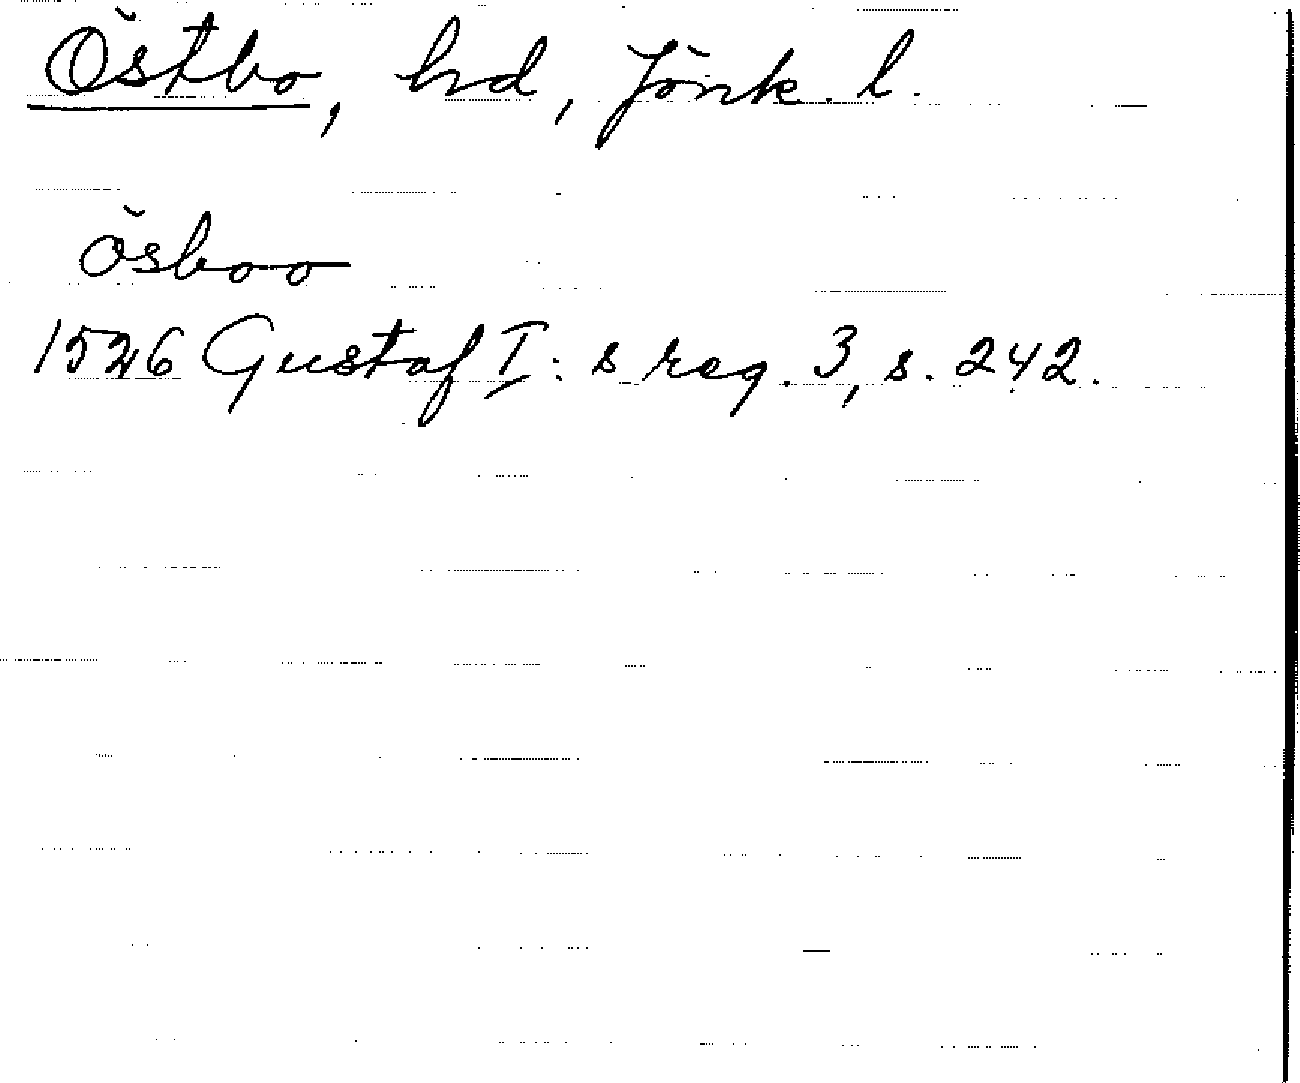 Östbo, hd, Jönk. l.
Ösboo
1526 Gustaf I: s reg. 3, s. 242.